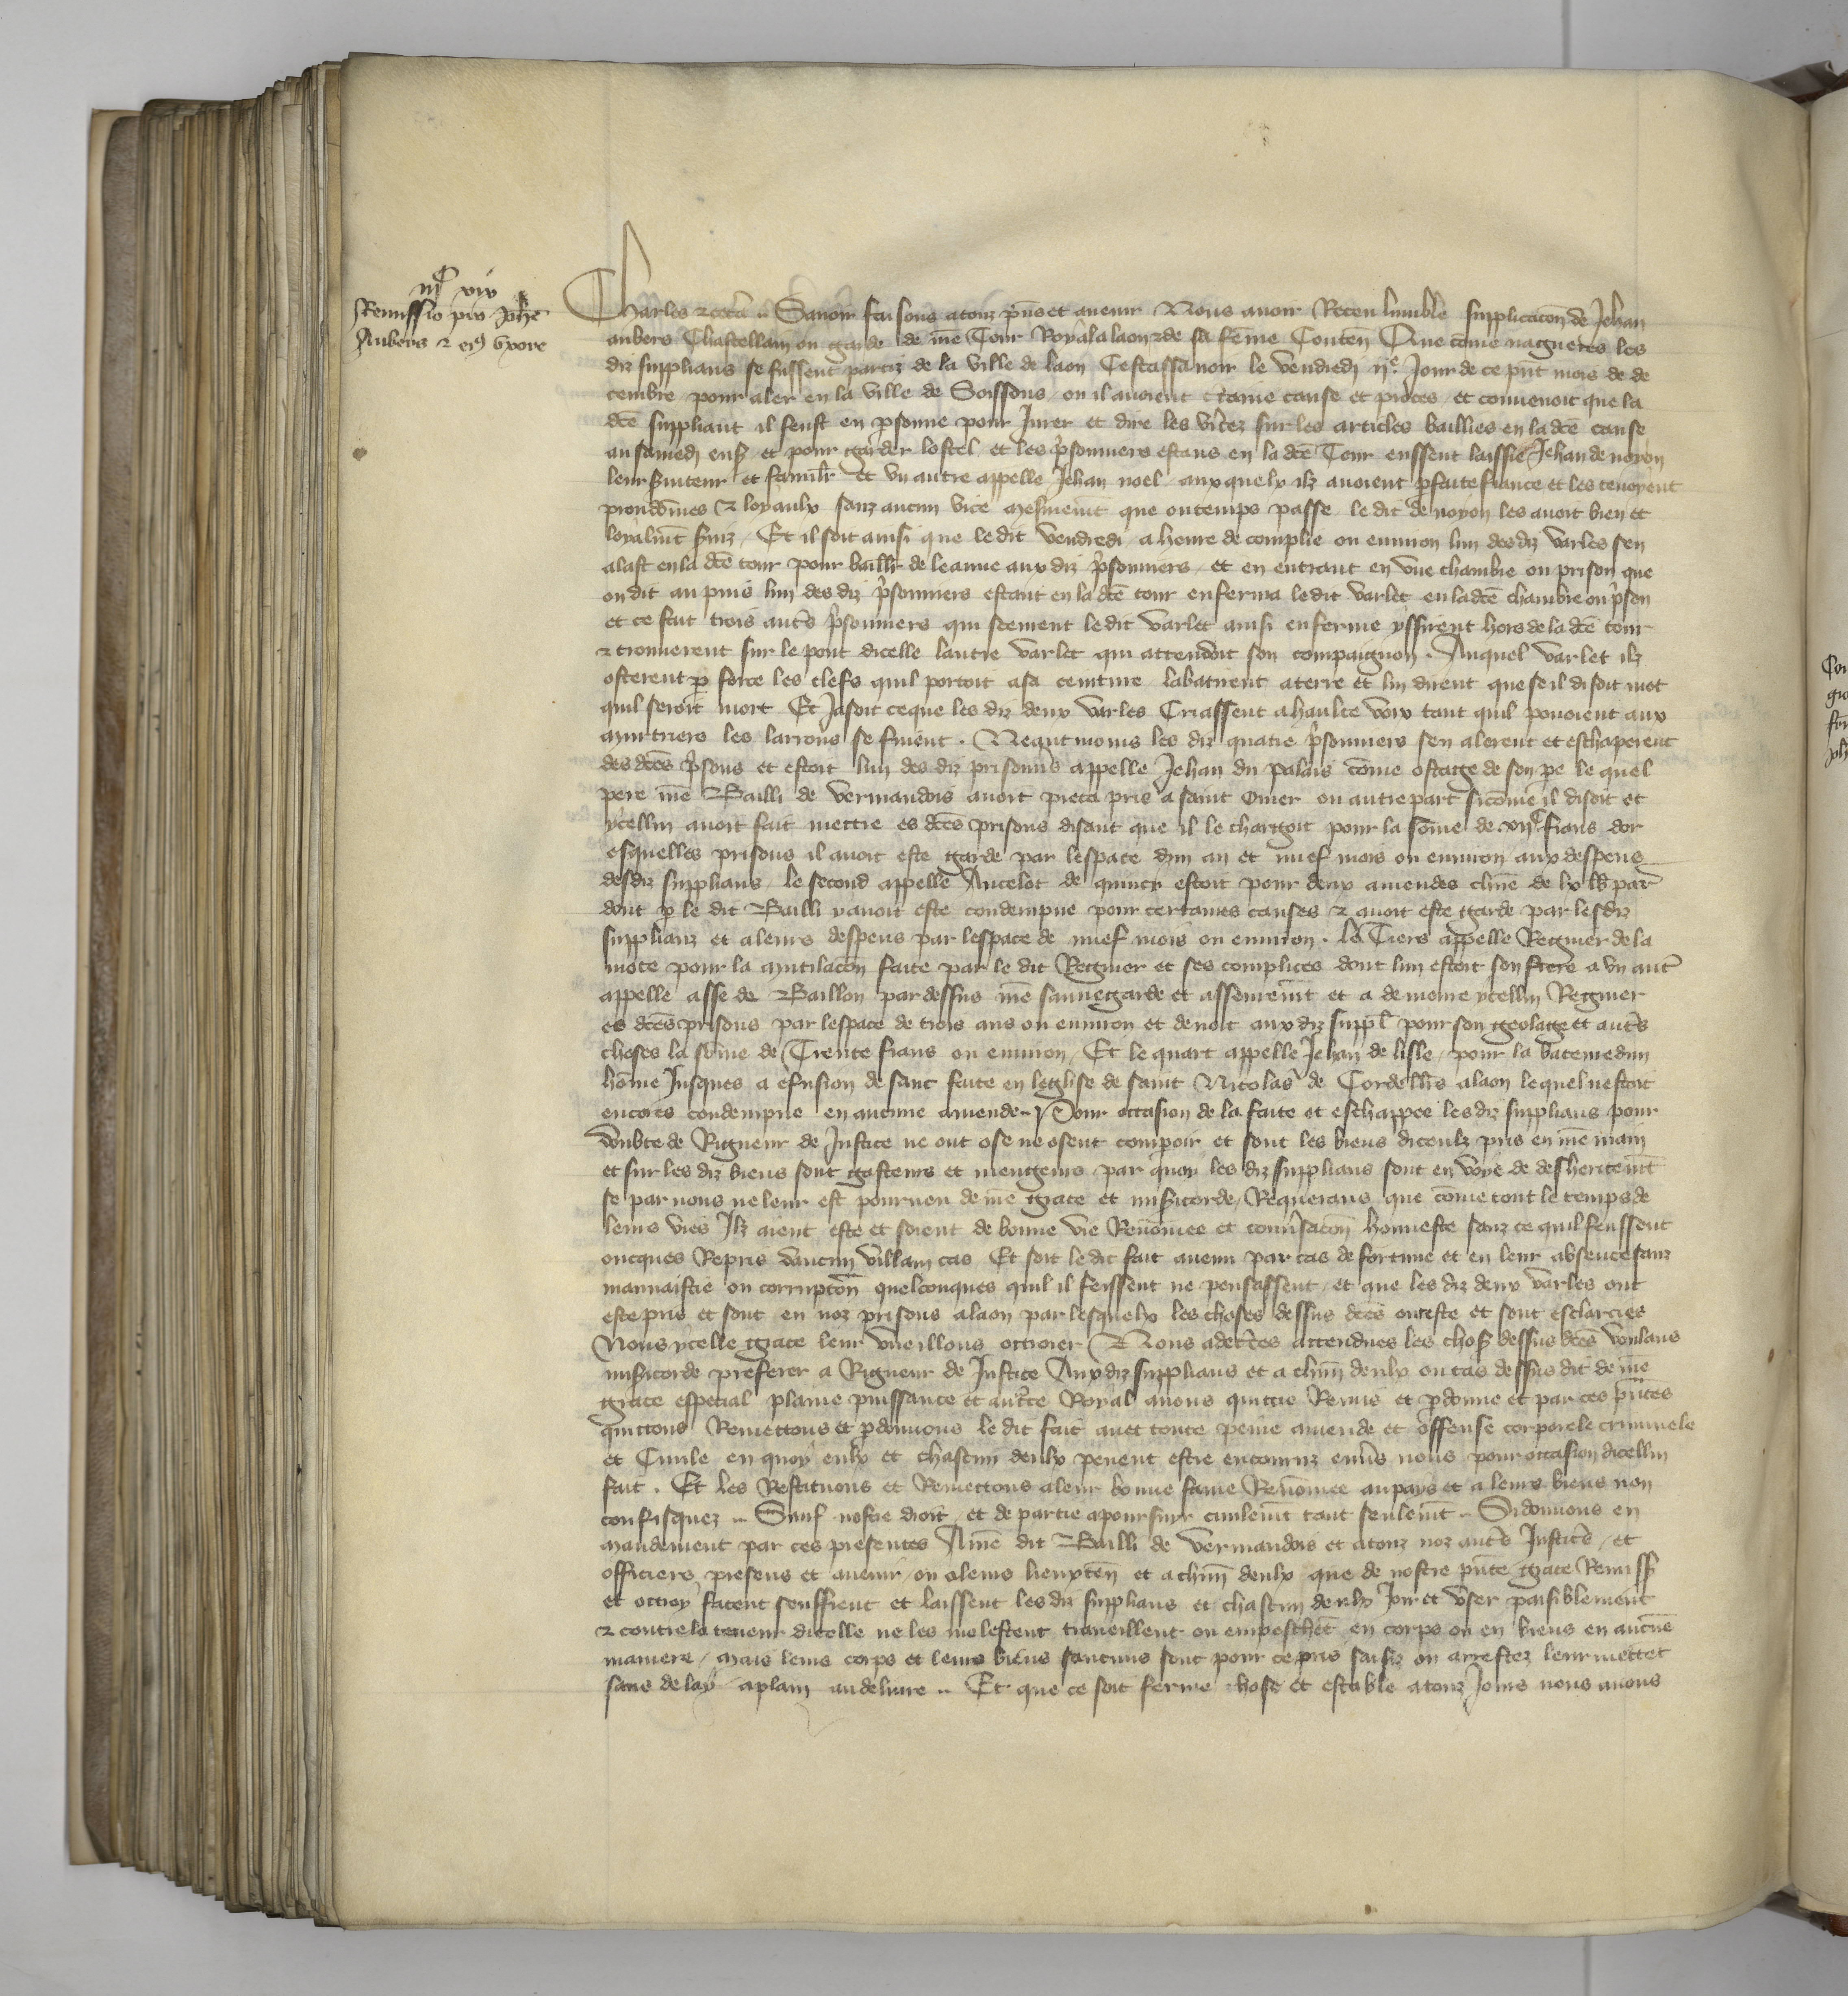 iiiᶜ xiv
Remissio pro Johe
Aubers ⁊ eiꝰ uxore
Charles ⁊ cetera .. Savoir faisons a touz pn̄s et avenir Nous avoir Receu lumble supplicacōn de Jehan
aubers Chastellain ou garde de nr̄e Tour Royal a laon ⁊ de sa fēme Contenͫ Que cōme nagueres les
diz supplians se fussent partiz de la ville de laon Cestassavoir le vendredi ijᵉ Jour de ce pn̄t mois de de
cembre pour aler en la ville de Soissons ou il avoient ctaine cause et proces et convenoit que la
dc̄e suppliant il feust en psonne pour Jurer et dire les vitez sur les articles baillies en ladc̄e cause
au samedi ens̄ et pour garder lostel et les psonniers estans en la dc̄e Tour eussent laissie Jehan de noyon
leur s̄viteur et famil̄r et un autre appelle Jehan noel auxquelx ilz avoient pfaite fiance et les tenoyent
proudōmes ⁊ loyaulx sanz aucun vice mesmem̄t que ou temps passe le dit de noyon les avoit bien et
loyalm̄t s̄viz / Et il soit ainsi que ledit vendredi a heure de complie ou environ lun desdiz varles sen
alast en la dc̄e tour pour baill̄r de leaue aux diz psonniers et en entrant en une chambre ou prison que
on dit au puis lun des diz psonniers estant en la dc̄e tour enferma ledit varlet en ladc̄e chambre ou pson
et ce fait trois aut̄s psonniers qui scevent le dit varlet ainsi enferme yssirent hors de la dc̄e tour
⁊ trouverent sur le pont dicelle lautre varlet qui attendoit son compaignon . Auquel varlet ilz
osterent p force les clefs quil portoit a sa ceinture labatirent a terre et lui dirent que se il disoit mot
quil seroit mort Et Jasoit ce que les diz deux varles Criassent a haulte voix tant quil pouoient aux
murtriers les larrons se fuient . Neantmoins les diz quatre psonniers sen alerent et eschaperent
des dc̄es psons et estoit lun des diz prisonn̄s appelle Jehan du palais cōme ostage de son pe le quel
pere nr̄e Bailli de vermandois avoit pieca pris a saint Omer ou autre part sicōme il disoit et
ycellui avoit fait mettre es dc̄es prisons disant que il le chargoit pour la sōme de viiᶜ frans dor
esquelles prisons il avoit este garde par lespace dun an et neuf mois ou environ aux despens
desdiz supplians / le second appelle Ancelot de quincy estoit pour deux amendes chūe de lx lb̄ par̄
dont p le dit Bailli y avoit este condempne pour certaines causes ⁊ avoit este garde par lesdiz
supplianz et a leurs despens par lespace de neuf mois ou environ . le Tiers appelle Regnier de la
mote pour la mutilacōn faite par le dit Regnier et ses complices dont lun estoit son frere a un aut̄
appelle asse de Baillon par dessus nr̄e sauvegarde et assurem̄t et a demoure ycellui Regnier
es dc̄es prisons par lespace de trois ans ou environ et devoit aux diz suppl̄ pour son geolage et aut̄s
choses la sōme de Trente frans ou environ / Et le quart appelle Jehan de lisle / pour la bateure dun
hōme Jusques a efusion de sanc faite en leglise de saint Nicolas de Cordell̄s a laon le quel nestoit
encores condempne en aucune amende / Pour occasion de la faite et eschappee les diz supplians pour
doubte de Rigueur de Justice ne ont ose ne osent compoir et sont les biens diceulz pris en nr̄e main
et sur les diz biens sont gasteurs et mengeurs par quoy les diz supplians sont en voye de desheritem̄t
se par nous ne leur est pourveu de nr̄e grace et mis̄icorde / Requerans que cōme tout le temps de
leurs vies Ilz aient este et soient de bonne vie Renōmee et convsacōn honneste sanz ce quil feussent
oncques Repris daucun villain cas Et soit le dit fait avenu par cas de fortune et en leur absence sanz
mauvaistie ou corrupcōn quelconques quil il feissent ne pensassent / et que les diz deux varles ont
este pris et sont en noz prisons a laon par lesquelx les choses dessus dc̄es ont este et sont esclarcies
Nous ycelle grace leur vueillons ottroier / Nous adec̄tes attendues les chos̄ dessus dc̄es voulans
mis̄icorde preferer a Rigueur de Justice Aux diz supplians et a chūn deulx ou cas dessus dit de nr̄e
grace especial plaine puissance et auc̄te Royal avons quittie Remis et pdonne et par ces pn̄tes
quittons Remettons et pdonnons le dit fait avec toute peine amende et offense corporele criminele
et Civile en quoy eulx et chascun deulx peuent estre encouruz env̄s nous pour occasion dicellui
fait . Et les Restituons et Remettons a leur bonne fame Renōmee au pays et a leurs biens non
confisquez .. Sauf nostre droit et de partie a poursuir civilem̄t tant seulem̄t .. Si donnons en
mandement par ces presentes Au nr̄e dit Bailli de vermandois et a touz noz aut̄s Justic̄s / et
officiers presens et avenir ou a leurs lieuxten̄ et a chūn deulx que de nostre pn̄te grace Remiss̄
et ottroy facent seuffrent et laissent les diz supplians et chascun deulx Joir et user paisiblement
⁊ contre la teneur dicelle ne les molestent traveillent ou empeschēt en corps ou en biens en aucūe
maniere / mais leurs corps et leurs biens saucuns sont pour ce pris saisiz ou arrestez leur mettēt
sans delay a plain au delivre .. Et que ce soit ferme chose et estable a touz Jours nous avons